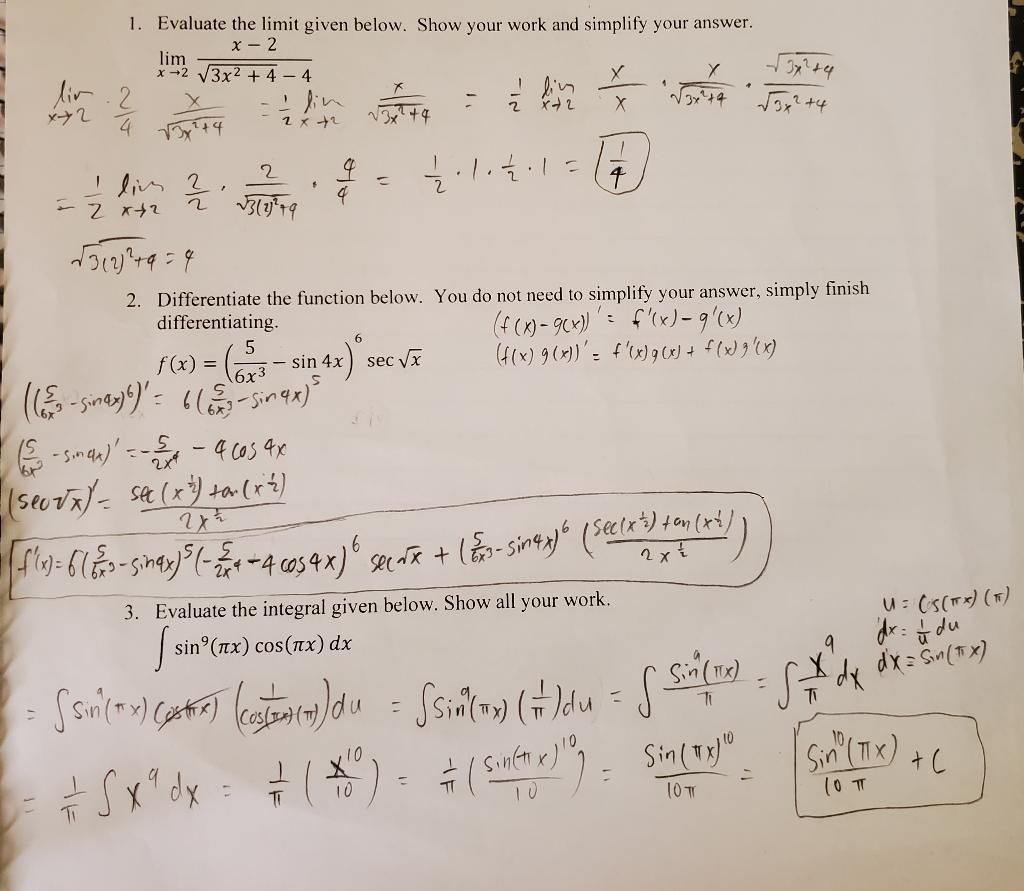 1. Evaluate the limit given below. Show your work and simplify your answer.
lim x→2 (x − 2)/(√(3x² + 4) − 4)
lim x→2 · 2/4 x/√(3x²+4) = 1/2 lim x→2 x/√(3x²+4) = 1/2 lim x→2 x/x · x/√(3x²+4) · √(3x²+4)/√(3x²+4)
= 1/2 lim x→2 2/2 · 2/√(3(2)²+4) · 4/4 = 1/2 · 1 · 1/2 · 1 = 1/4
√(3(2)²+4) = 4
2. Differentiate the function below. You do not need to simplify your answer, simply finish
differentiating.
(f(x) - g(x))' = f'(x) - g'(x)
f(x) = (5/(6x³) − sin 4x)⁶ sec √x
(f(x) g(x))' = f'(x) g(x) + f(x) g'(x)
((5/(6x³) - sin4x)⁶)' = 6(5/(6x³) - sin4x)⁵
(5/(6x³) - sin4x)' = -5/(2x⁴) - 4 cos 4x
(sec√x)' = sec(x^½) tan(x^½)/(2x^½)
f'(x) = 6(5/(6x³) - sin4x)⁵ (-5/(2x⁴) - 4 cos4x)⁶ sec√x + (5/(6x³) - sin4x)⁶ (sec(x^½) tan(x^½)/(2x^½))
3. Evaluate the integral given below. Show all your work.
∫ sin⁹(πx) cos(πx) dx
u = cos(πx) (π)
dx = 1/u du
dx = sin(πx)
= ∫ sin⁹(πx) cos(πx) (1/(cos(πx)(π))) du = ∫ sin⁹(πx) (1/π) du = ∫ sin⁹(πx)/π = ∫ x⁹/π dx
= 1/π ∫ x⁹ dx = 1/π (x¹⁰/10) = 1/π (sin(πx)¹⁰/10) = sin(πx)¹⁰/(10π) = sin¹⁰(πx)/(10π) + C